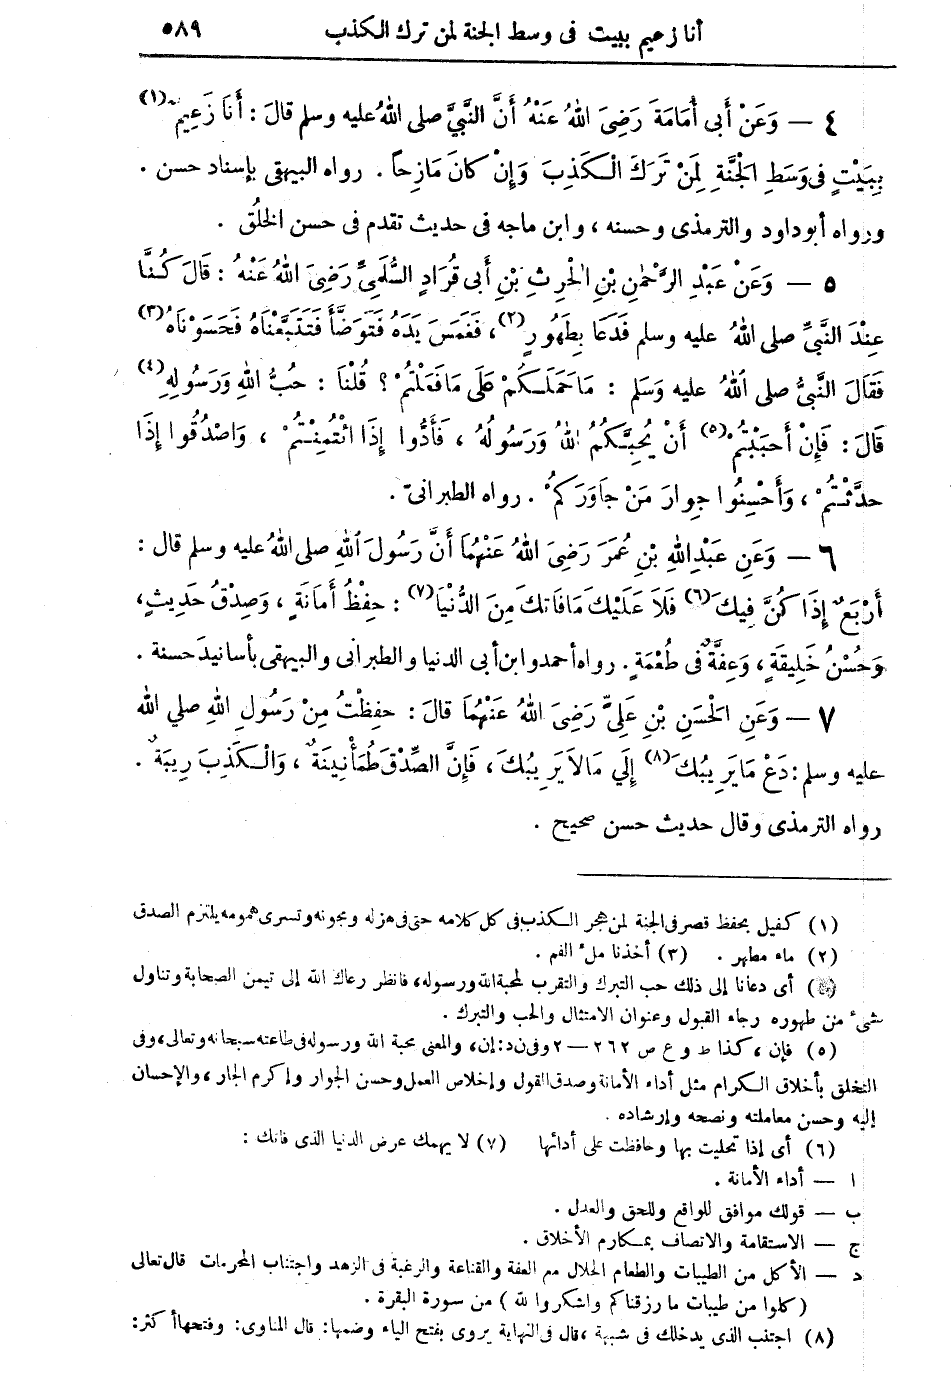 أنا زعيم ببيت فى وسط الجنة لمن ترك الكذب ٥٨٩
٤ — وَعَنْ أَبى أُمَامَةَ رَضِىَ اللهُ عَنْهُ أَنَّ النَّبِىَّ صلى اللهُ عليه وسلم قالَ : أَنَا زَعِيمٌ (١)
بِبَيْتٍ فى وَسَطِ الْجَنَّةِ لِمَنْ تَرَكَ الْكَذِبَ وَإِنْ كانَ مَازِحاً . رواه البيهقى بإسناد حسن .
ورواه أبو داود والترمذى وحسنه ، وابن ماجه فى حديث تقدم فى حسن الخلُق .
٥ — وَعَنْ عَبْدِ الرَّحْمٰنِ بْنِ الْحٰرِثِ بْنِ أَبى قُرَادٍ السُّلَمِىِّ رَضِىَ اللهُ عَنْهُ : قَالَ كُنَّا
عِنْدَ النَّبِىِّ صلى اللهُ عليه وسلم فَدَعَا بِطَهُورٍ (٢) ، فَغَمَسَ يَدَهُ فَتَوَضَّأَ فَتَتَبَّعْنَاهُ فَحَسَوْنَاهُ (٣)
فَقَالَ النَّبِىُّ صلى اللهُ عليه وَسَلم : مَا حَمَلَكُمْ عَلَى مَا فَعَلْتُمْ ؟ قُلْنَا : حُبُّ اللهِ وَرَسُولِهِ (٤)
قَالَ : فَإِنْ أَحْبَبْتُمْ (٥) أَنْ يُحِبَّكُمُ اللهُ وَرَسُولُهُ ، فَأَدُّوا إِذَا ائْتُمِنْتُمْ ، وَاصْدُقُوا إِذَا
حدَّثْتُمْ ، وَأَحْسِنُوا جِوارَ مَنْ جَاوَرَكُمْ . رواه الطبرانىّ .
٦ — وَعَنِ عَبْدِ اللهِ بْنِ عُمَرَ رَضِىَ اللهُ عَنْهُمَا أَنَّ رَسُولَ اللهِ صلى اللهُ عليه وسلم قال :
أَرْبَعٌ إِذَا كُنَّ فِيكَ (٦) فَلَا عَلَيْكَ مَا فَاتَكَ مِنَ الدُّنْيَا (٧) : حِفْظُ أَمَانَةٍ ، وَصِدْقُ حَدِيثٍ ،
وَحُسْنُ خَلِيقَةٍ ، وَعِفَّةٌ فى طُعْمَةٍ . رواه أحمد وابن أبى الدنيا والطبرانى والبيهقى بأسانيدَ حسنة .
٧ — وَعَنِ الْحَسَنِ بْنِ عَلِىٍّ رَضِىَ اللهُ عَنْهُمَا قَالَ : حفِظْتُ مِنْ رَسُولِ اللهِ صلي الله
عليه وسلم : دَعْ مَا يَرِيبُكَ (٨) إِلَي مَالَا يَرِيبُكَ ، فَإِنَّ الصِّدْقَ طُمَأْنِينَةٌ ، وَالْكَذِبَ رِيبَةٌ .
رواه الترمذى وقال حديث حسن صحيح .
(١) كفيل بحفظ قصر فى الجنة لمن هجر الكذب فى كل كلامه حتى فى هزله ومجونه وتسرى همومه يلتزم الصدق
(٢) ماء مطهر . (٣) أخذنا ملء الفم .
( ) أى دعانا إلى ذلك حب التبرك والتقرب لمحبة الله ورسوله ، فانظر رعاك الله إلى تيمن الصحابة وتناول
شىء من طهوره رجاء القبول وعنوان الامتثال والحب والتبرك .
(٥) فإن ، كذا ط و ع ص ٢٦٢ — ٢ وفى ن د : إن ، والمعنى محبة الله ورسوله فى طاعته سبحانه وتعالى ، وفى
التخلق بأخلاق الكرام مثل أداء الأمانة وصدق القول وإخلاص العمل وحسن الجوار وإكرم الجار ، والإحسان
إليه وحسن معاملته ونصحه وإرشاده .
(٦) أى إذا تحليت بها وحافظت على أدائها (٧) لا يهمك عرض الدنيا الذى فاتك :
ا — أداء الأمانة .
ب — قولك موافق للواقع وللحق والعدل .
ج — الاستقامة والاتصاف بمكارم الأخلاق .
د — الأكل من الطيبات والطعام الحلال مع العفة والقناعة والرغبة فى الزهد واجتناب المحرمات قال تعالى
( كلوا من طيبات ما رزقناكم واشكروا لله ) من سورة البقرة .
(٨) اجتنب الذى يدخلك فى شبهة ، قال فى النهاية يروى بفتح الياء وضمها : قال المناوى : وفتحها أكثر :